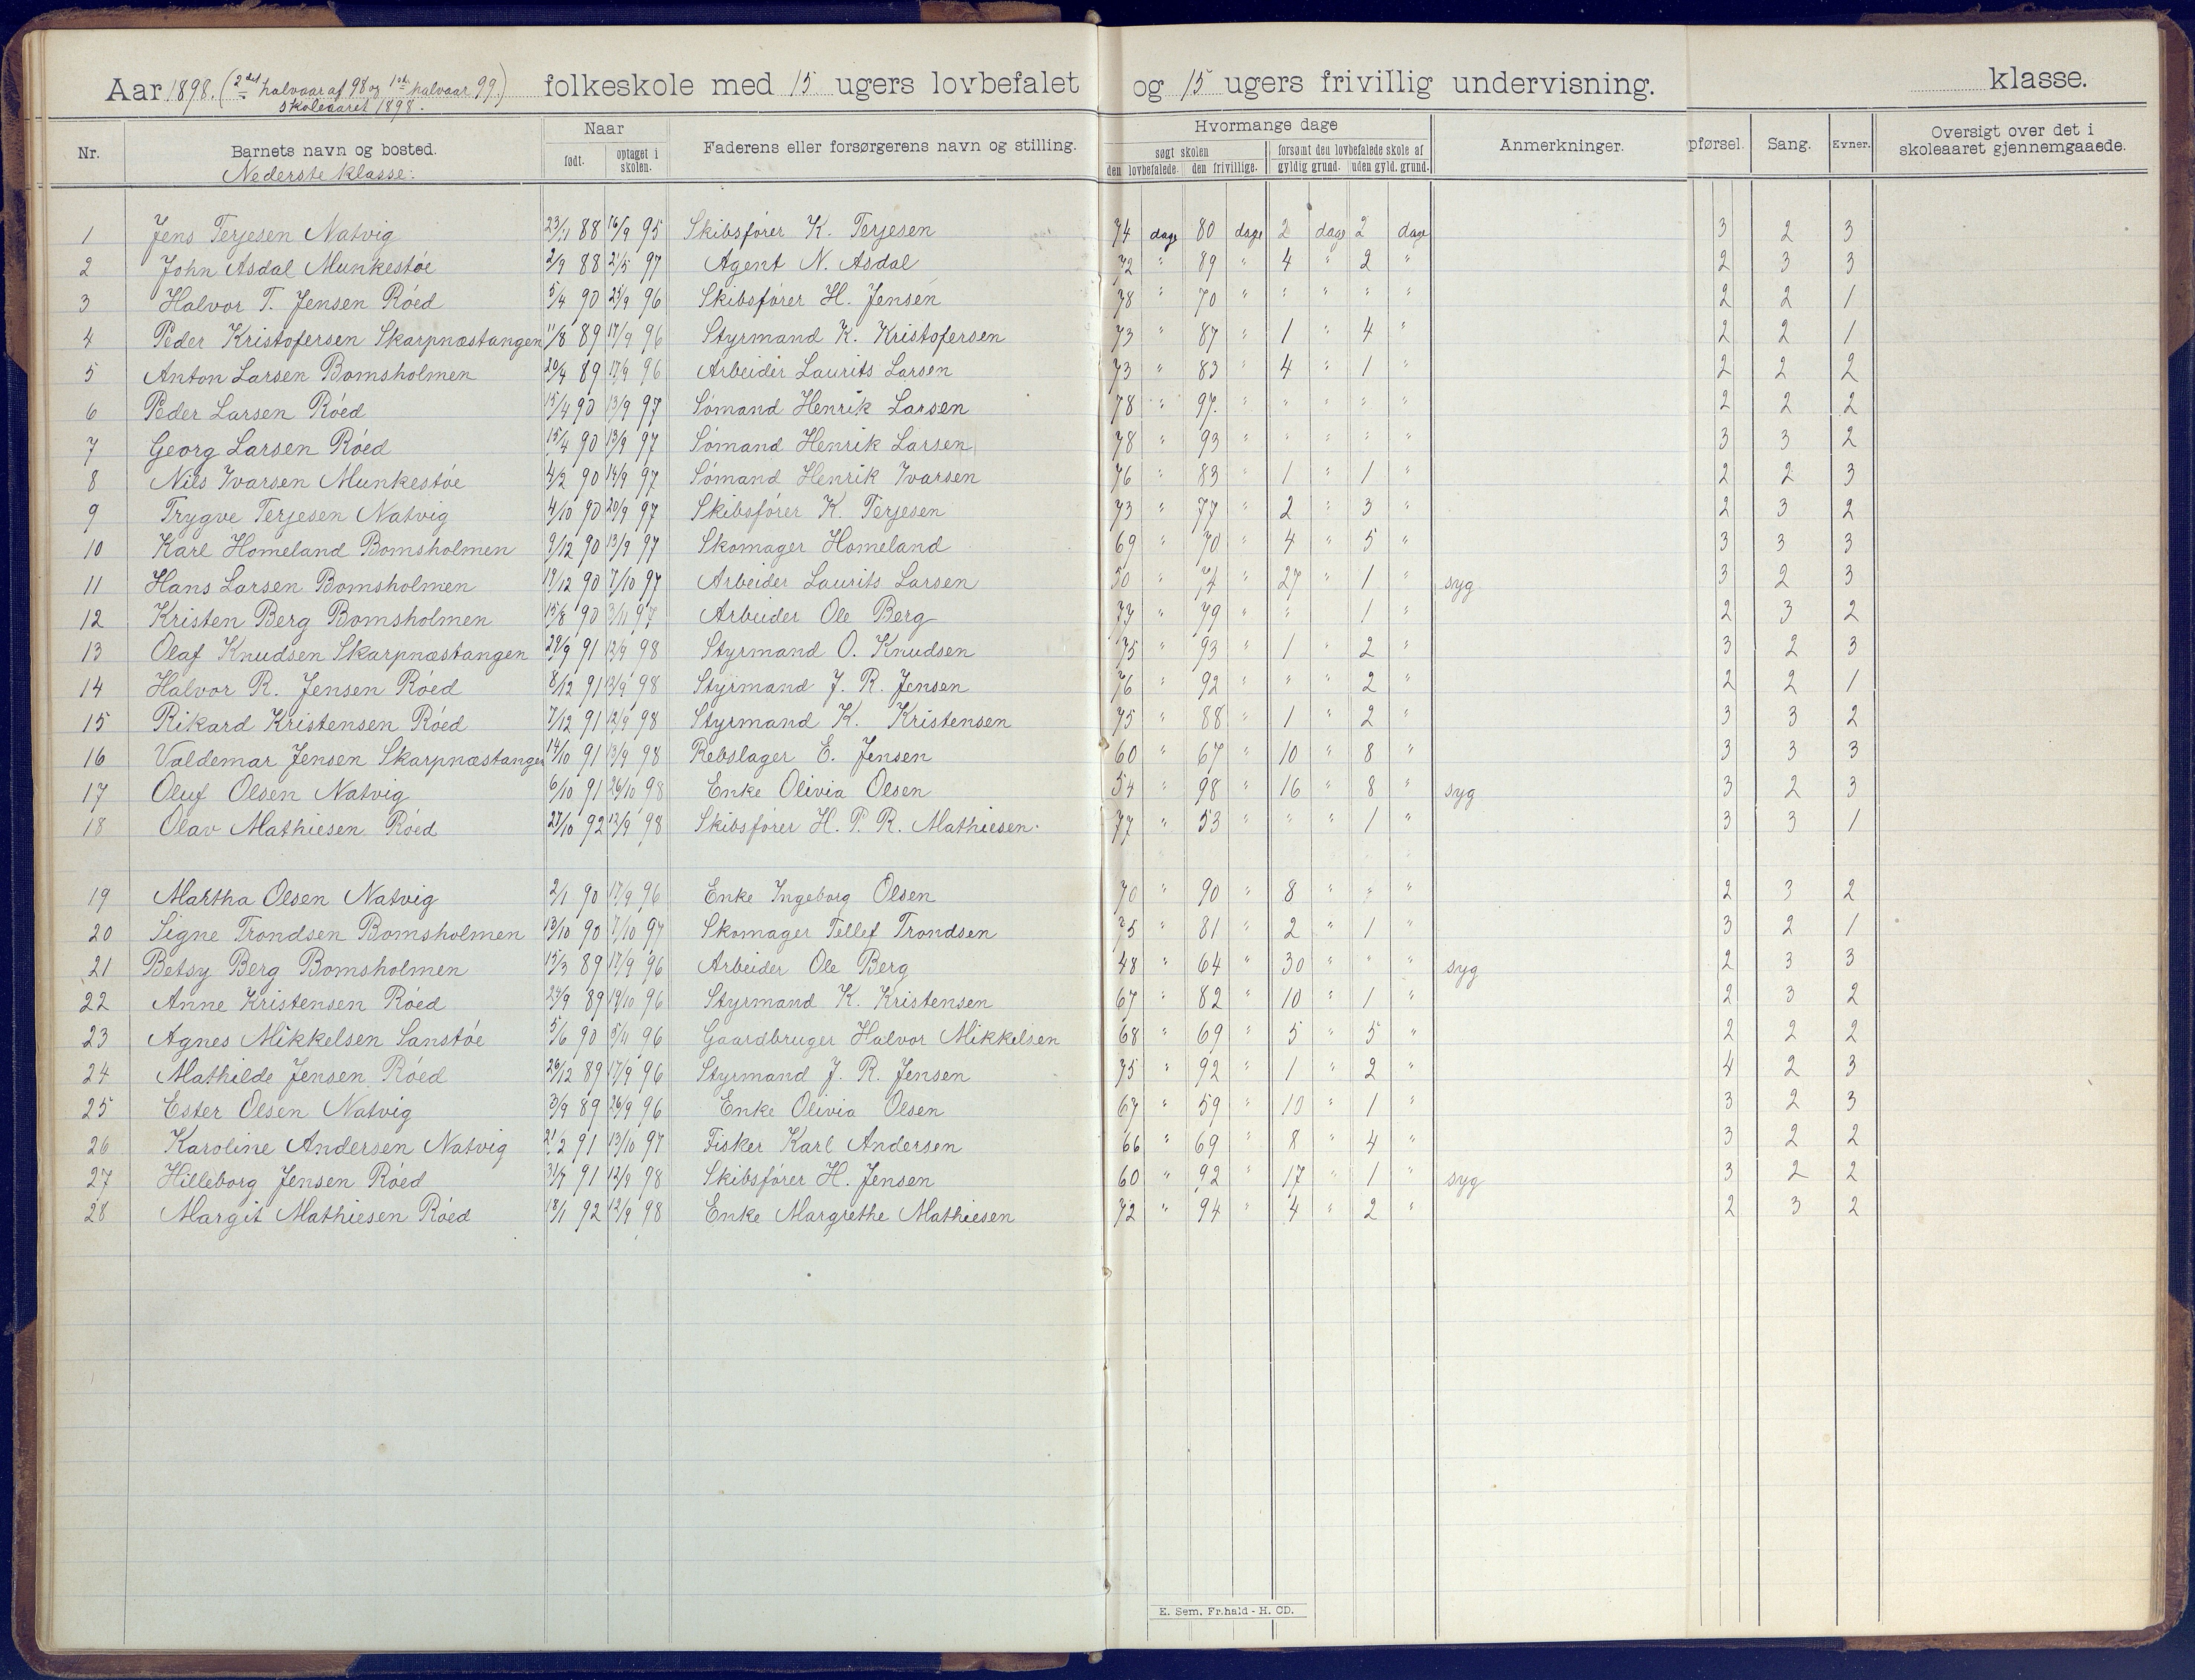 Aar 1898. (2det halvaar af 98 og 1ste halvaar 99.) folkeskole med 15 ugers lovbefalet og 15 ugers frivillig undervisning. klasse.
skoleaaret 1898.
Nr. Barnets navn og bosted. Naar Faderens eller forsørgerens navn og stilling. Hvormange dage Anmerkninger. pførsel. Sang. Evner. Oversigt over det i skoleaaret gjennemgaaede.
født. optaget i skolen. søgt skolen forsømt den lovbefalede skole af
den lovbefalede. den frivillige. gyldig grund. uden gyld. grund.
Nederste klasse:
1 Jens Terjesen Natvig 23/11 88 16/9 95 Skibsfører K. Terjesen 74 dage 80 dage 2 dage 2 dage 3 2 3
2 John Asdal Munkestøe 2/9 88 21/5 97 Agent N. Asdal 72 " 89 " 4 " 2 " 2 3 3
3 Halvor T. Jensen Røed 5/4 90 25/9 96 Skibsfører H. Jensen 78 " 70 " " " " " 2 2 1
4 Peder Kristofersen Skarpnæstangen 11/8 89 17/9 96 Styrmand K. Kristofersen 73 " 87 " 1 " 4 " 2 2 1
5 Anton Larsen Bomsholmen 20/4 89 17/9 96 Arbeider Laurits Larsen 73 " 83 " 4 " 1 " 2 2 2
6 Peder Larsen Røed 15/4 90 13/9 97 Sømand Henrik Larsen 78 " 97. " " " " " 2 2 2
7 Georg Larsen Røed 15/4 90 13/9 97 Sømand Henrik Larsen 78 " 93 " " " " " 3 3 2
8 Nils Ivarsen Munkestøe 4/2 90 14/9 97 Sømand Henrik Ivarsen 76 " 83 " 1 " 1 " 2 2 3
9 Trygve Terjesen Natvig 4/10 90 20/9 97 Skibsfører K. Terjesen 73 " 77 " 2 " 3 " 2 3 2
10 Karl Homeland Bomsholmen 9/12 90 13/9 97 Skomager Homeland 69 " 70 " 4 " 5 " 3 3 3
11 Hans Larsen Bomsholmen 19/12 90 7/10 97 Arbeider Laurits Larsen 50 " 74 " 27 " 1 " syg 3 2 3
12 Kristen Berg Bomsholmen 15/8 90 3/11 97 Arbeider Ole Berg 77 " 79 " " 1 " 2 3 2
13 Olaf Knudsen Skarpnæstangen 29/9 91 12/9 98 Styrmand O. Knudsen 75 " 93 " 1 " 2 " 3 2 3
14 Halvor R. Jensen Røed 8/12 91 12/9 98 Styrmand J. R. Jensen 76 " 92 " " " 2 " 2 2 1
15 Rikard Kristensen Røed 7/12 91 12/9 98 Styrmand K. Kristensen 75 " 88 " 1 " 2 " 3 3 2
16 Valdemar Jensen Skarpnæstangen 14/10 91 13/9 98 Rebslager E. Jensen 60 " 67 " 10 " 8 " 3 3 3
17 Oluf Olsen Natvig 6/10 91 26/10 98 Enke Olivia Olsen 54 " 98 " 16 " 8 " syg 3 2 3
18 Olav Mathiesen Røed 27/10 92 12/9 98 Skibsfører H. P. R. Mathiesen. 77 " 53 " " " 1 " 3 3 1
19 Martha Olsen Natvig 2/1 90 17/9 96 Enke Ingeborg Olsen 70 " 90 " 8 " " " 2 3 2
20 Signe Trondsen Bomsholmen 13/10 90 7/10 97 Skomager Tellef Trondsen 75 " 81 " 2 " 1 " 3 2 1
21 Betsy Berg Bomsholmen 15/3 89 17/9 96 Arbeider Ole Berg 48 " 64 " 30 " " " syg 2 3 3
22 Anne Kristensen Røed 24/9 89 19/10 96 Styrmand K. Kristensen 67 " 82 " 10 " 1 " 2 3 2
23 Agnes Mikkelsen Sanstøe 5/6 90 5/11 96 Gaardbruger Halvor Mikkelsen 68 " 69 " 5 " 5 " 2 2 2
24 Mathilde Jensen Røed 26/12 89 17/9 96 Styrmand J. R. Jensen 75 " 92 " 1 " 2 " 4 2 3
25 Ester Olsen Natvig 3/9 89 26/9 96 Enke Olivia Olsen 67 " 59 " 10 " 1 " 3 2 3
26 Karoline Andersen Natvig 21/2 91 13/10 97 Fisker Karl Andersen 66 " 69 " 8 " 4 " 3 2 2
27 Hilleborg Jensen Røed 31/7 91 12/9 98 Skibsfører H. Jensen 60 " 92 " 17 " 1 " syg 3 2 2
28 Margit Mathiesen Røed 18/1 92 12/9 98 Enke Margrethe Mathiesen 72 " 94 " 4 " 2 " 2 3 2
E. Sem, Fr.hald - H. CD.